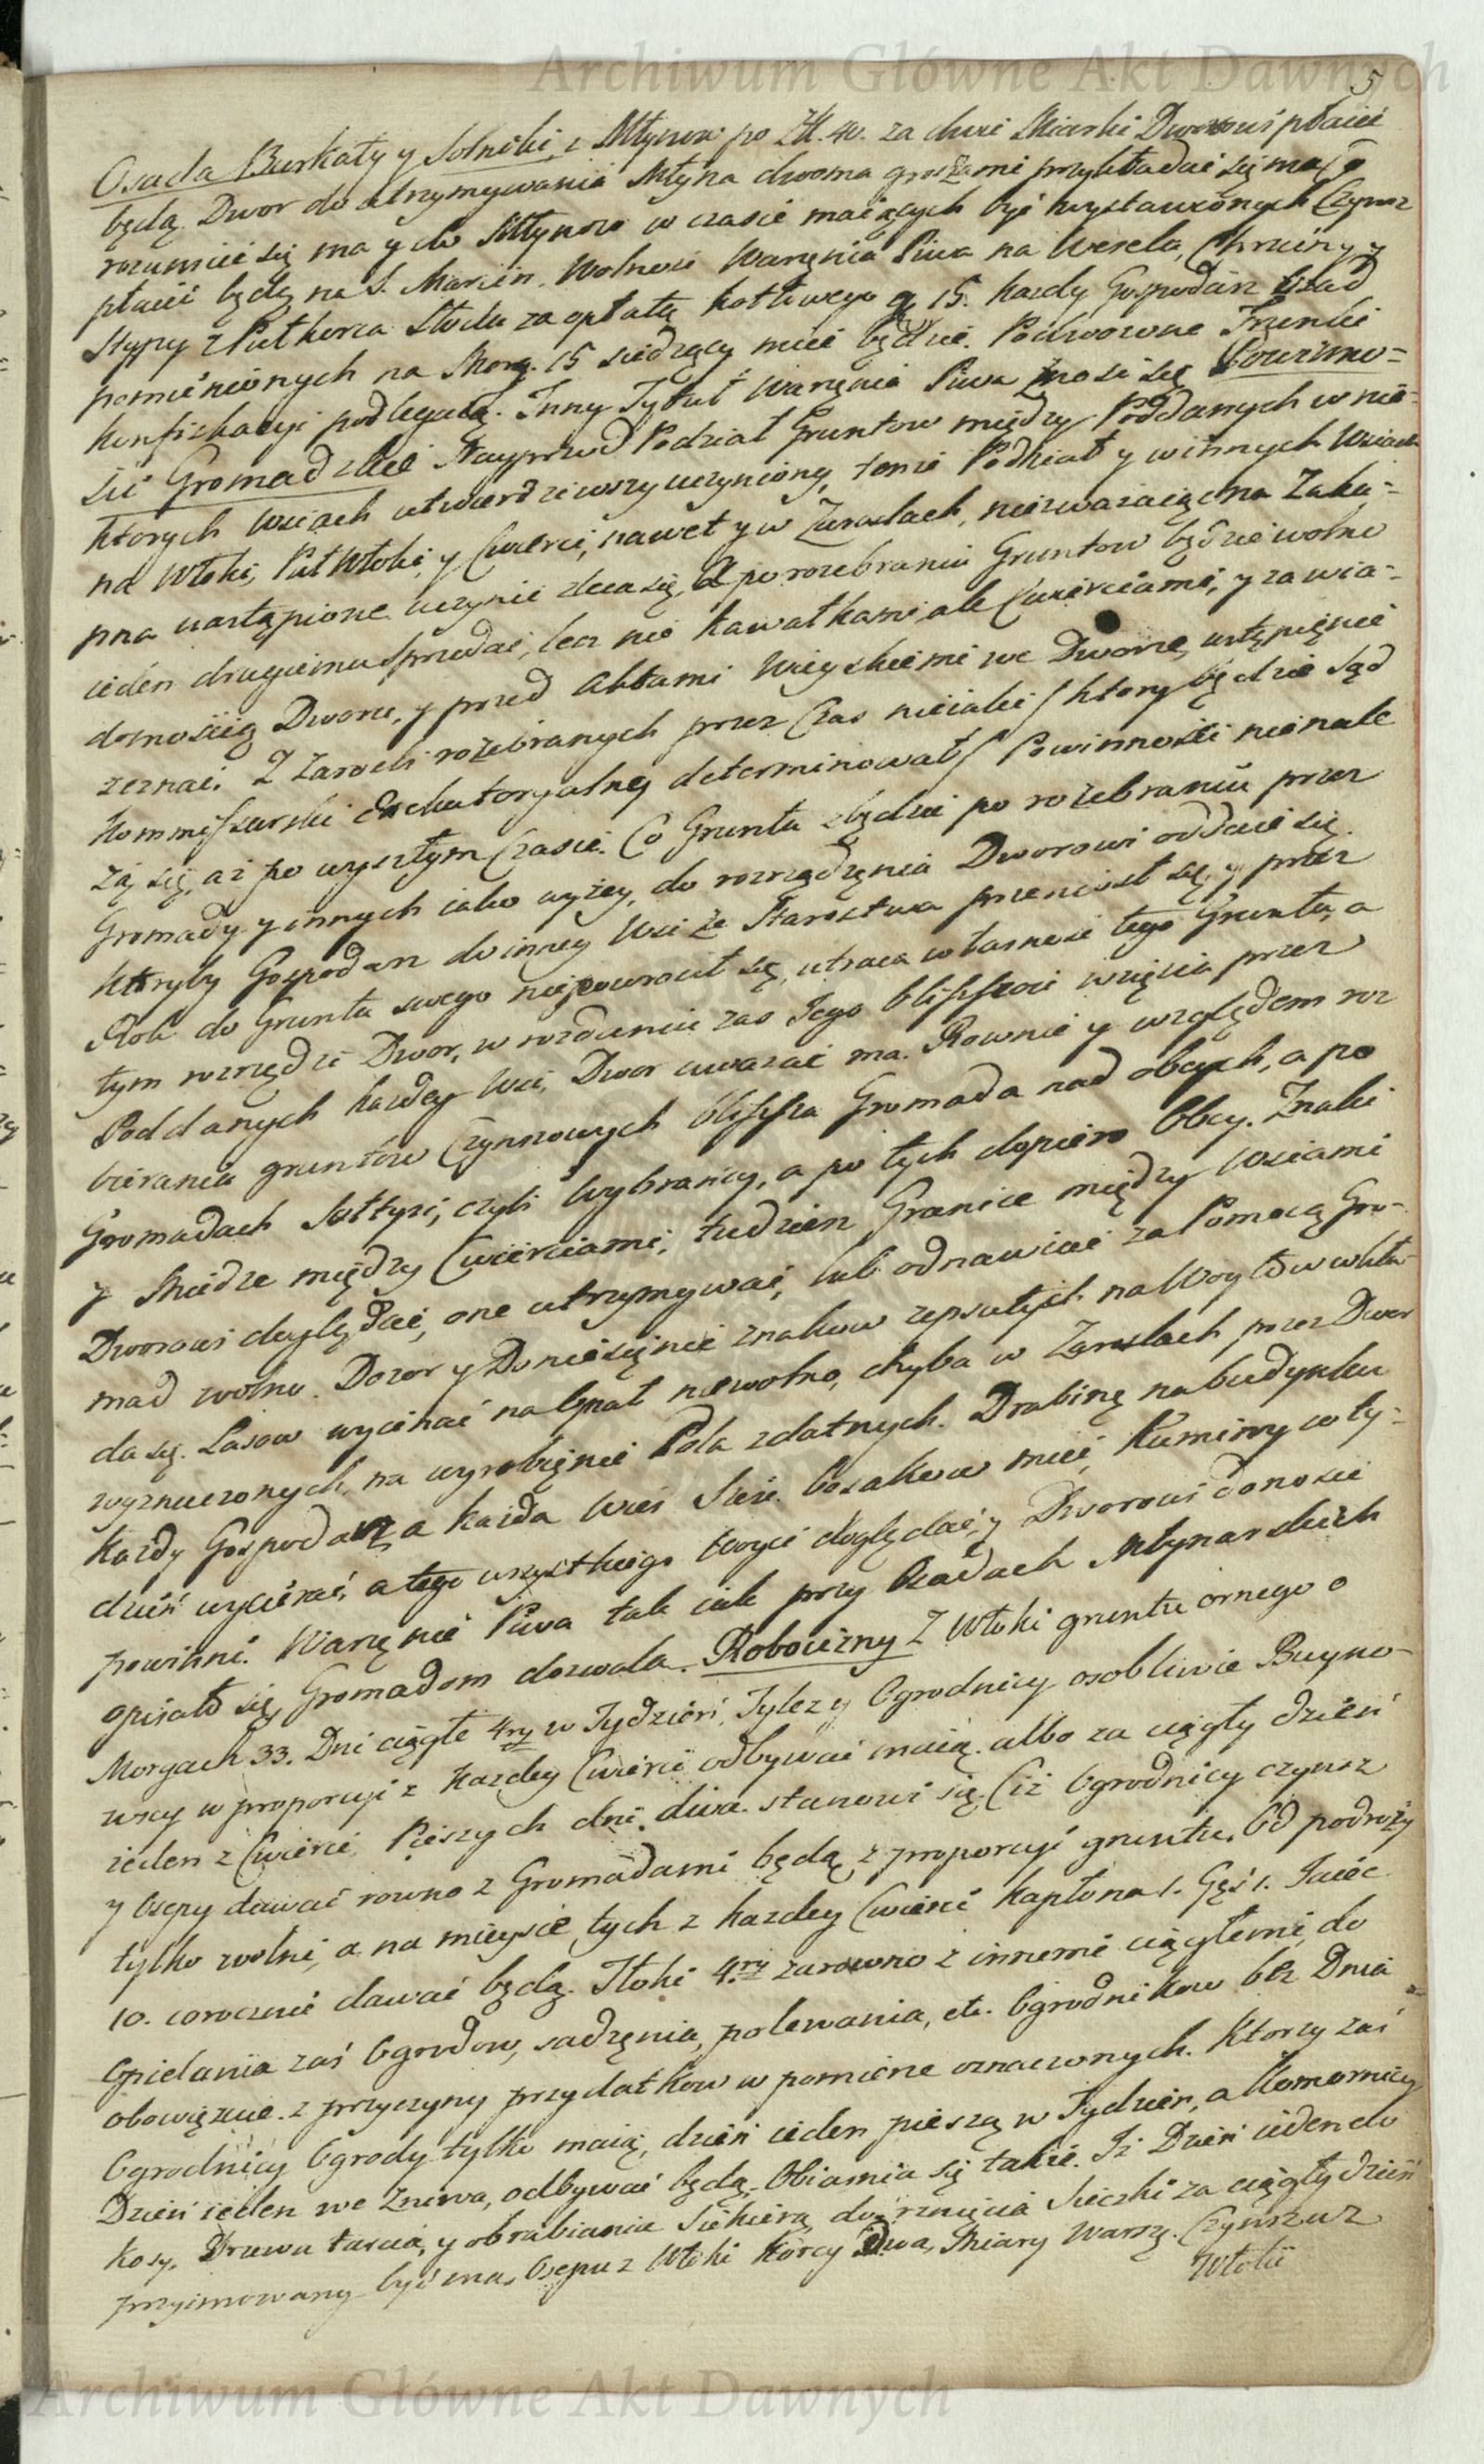 Archiwum Główne Akt Dawnych
5
Osada Burkaty y Solniki, z Młynow po Zł. 40. za dwie Miarki Dworowi płacić
będą. Dwor do utrzymywania Młyna dwoma groszami przykładać się ma, to
rozumieć się ma y do Młynow w czasie maiących być wystawionych Czynsz
płacić będą na S. Marcin. Wolność Warzęnia Piwa na Wesela, Chrzciny y
Stypy z Puł korca Słodu za opłatą kotłowego g. 15. każdy Gospodarz Osad
pomienionych na Morg. 15 siedzący mieć będzie. Podwoowne Trunki
konfiskacyi podlegaią. Inny Tytuł Warzęnia Piwa znosi się Powinno-
ści Gromadzkie Nayprzod Podział Gruntow między Poddanych w nie-
ktorych Wsiach utwierdziwszy uczyniony, tenże Podział y w innych Wsiach
na Włoki, Puł Włoki, y Cwierci, nawet y w Zaroslach, niezważaiąc na Zaku-
pna nastąpione uczynić zleca się, a po rozebraniu Gruntow będzie wolno
ieden drugiemu sprzedać, lecz nie kawałkami, ale Cwierciami, y za wia-
domością Dworu, y przed Aktami Wieyskiemi we Dworze, ustąpięnie
zeznać. Z Zarosli rozebranych przez Czas nieiaki / ktory będzie Sąd
Kommissarski Exekutoryalney determinował / Powinności nienale
żą się, aż po wyszłym Czasie. Co Gruntu zbędzie po rozebraniu przez
Gromady y innych iako wyżey, do rozrządzęnia Dworowi oddaie się.
Ktoryby Gospodarz do inney Wsi ze Starostwa przeniosł się, y przez
Rok do Gruntu swego niepowrocił się, utraca własność tego Gruntu, a
tym rozrządzi Dwor, w rozdaniu zas Jego bliższość wzięcia przez
Poddanych każdey Wsi, Dwor uważać ma. Rownie y względem roz
bierania gruntow Czynszowych bliższa Gromada nad obcych, a po
Gromadach Sołtysi, czyli Wybrańcy, a po tych dopiero Obcy. Znaki
y Miedze między Cwierciami, tudzież Granice między Wsiami
Dworowi doglądać, one utrzymywać, lub odnawiać za Pomocą Gro-
mad wolno. Dozor y Doniesięnie znakow zepsutych na Woytow wkła-
da się. Lasow wycinać na Opał niewolno, chyba w Zaroslach przez Dwor
wyznaczonych, na wyrobięnie Pola zdatnych. Drabinę na budynku
Każdy Gospodarz, a każda Wieś Sześć bosakow mieć, Kominy co ty-
dzień wycierać, a tego wszystkiego Woyci doglądać, y Dworowi donosić
powinni. Warzęnie Piwa tak iak przy Osadach Młynarskich
opisało się, Gromadom dozwala. Robocizny Z Włoki gruntu ornego o
Morgach 33. Dni ciągłe 4ry w Tydzień, Tyleż y Ogrodnicy osobliwie Buyno-
wscy w proporcyi z Każdey Cwierci odbywać maią. albo za ciągły dzień
ieden z Cwierci, Pieszych dni. dwa. stanowi się. Ciż Ogrodnicy czynsz
y Osepy dawać rowno z Gromadami będą z proporcyi gruntu. Od podroży
tylko wolni, a na mieysce tych z każdey Cwierci Kapłona 1. Gęś 1. Jaiec
10. corocznie dawać będą. Tłoki 4ry zarowno z innemi ciągłemi, do
Opielania zaś Ogrodow, sadzęnia, polewania, etc. Ogrodnikow bez Dnia
obowięzuie. z przyczyny przydatkow w pomiene oznaczonych. Ktorzy zaś
Ogrodnicy Ogrody tylko maią, dzień ieden pieszą w Tydzień, a Komornicy
Dzień ieden we Zniwa, odbywać będą. Obiasnia się także. Iż Dzień ieden do
Kosy, Drzewa tarcia, y obrabiania Siekierą, do rznięcia Sieczki za ciągły dzień
przyimowany być ma. Osepu z Włoki Korcy Dwa, Miary Warsz. Czynszu z
Włoki
Archiwum Główne Akt Dawnych